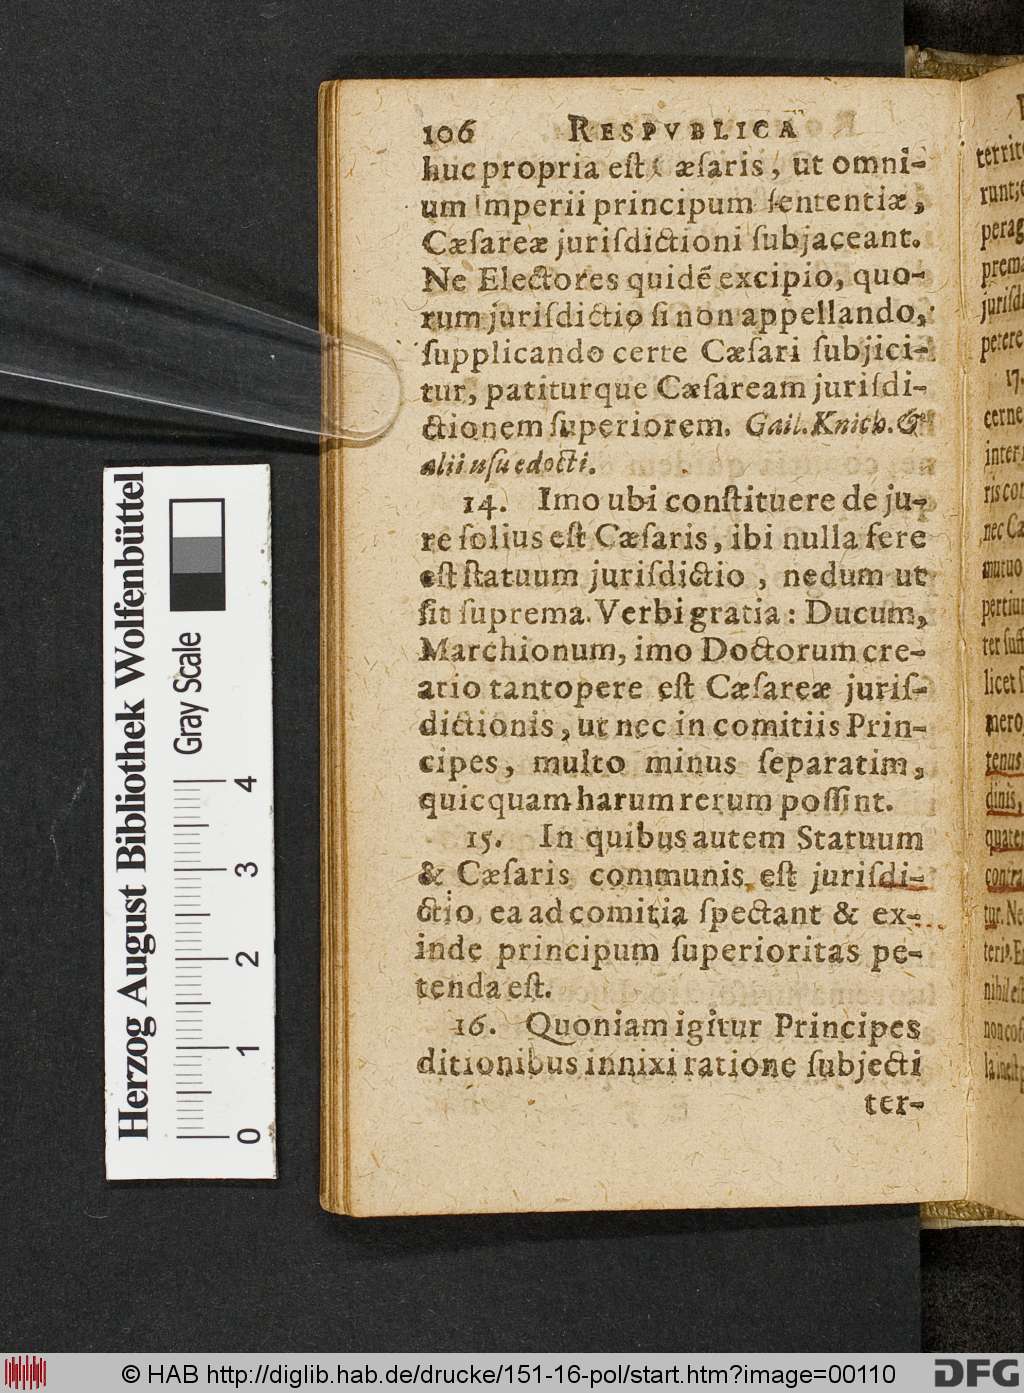 106 RESPVBLICA
huc propria eſt Cæſaris, ut omni-
um Imperii principum ſententiæ,
Cæſareæ juriſdictioni ſubjaceant.
Ne Electores quidē excipio, quo-
rum juriſdictio ſi non appellando,
ſupplicando certe Cæſari ſubjici-
tur, patiturque Cæſaream juriſdi-
ctionem ſuperiorem. Gail. Knich. &
alii uſu edocti.
14. Imo ubi conſtituere de ju-
re ſolius eſt Cæſaris, ibi nulla fere
eſt ſtatuum juriſdictio, nedum ut
ſit ſuprema. Verbi gratia: Ducum,
Marchionum, imo Doctorum cre-
atio tantopere eſt Cæſareæ juriſ-
dictionis, ut nec in comitiis Prin-
cipes, multo minus ſeparatim,
quicquam harum rerum poſſint.
15. In quibus autem Statuum
& Cæſaris communis eſt juriſdi-
ctio, ea ad comitia ſpectant & ex-
inde principum ſuperioritas pe-
tenda eſt.
16. Quoniam igitur Principes
ditionibus innixi ratione ſubjecti
ter-
territo
runt;
perag
prema
juriſdi
petere
17.
cerne
inter
ris con
nec Cæ
mutuo
pertiu
ter ſuff
licet ſ
mero,
tenus
dinis,
quaten
contra
tur. Ne
nihil eſt
Herzog August Bibliothek Wolfenbüttel
Gray Scale
0 1 2 3 4
© HAB http://diglib.hab.de/drucke/151-16-pol/start.htm?image=00110
DFG